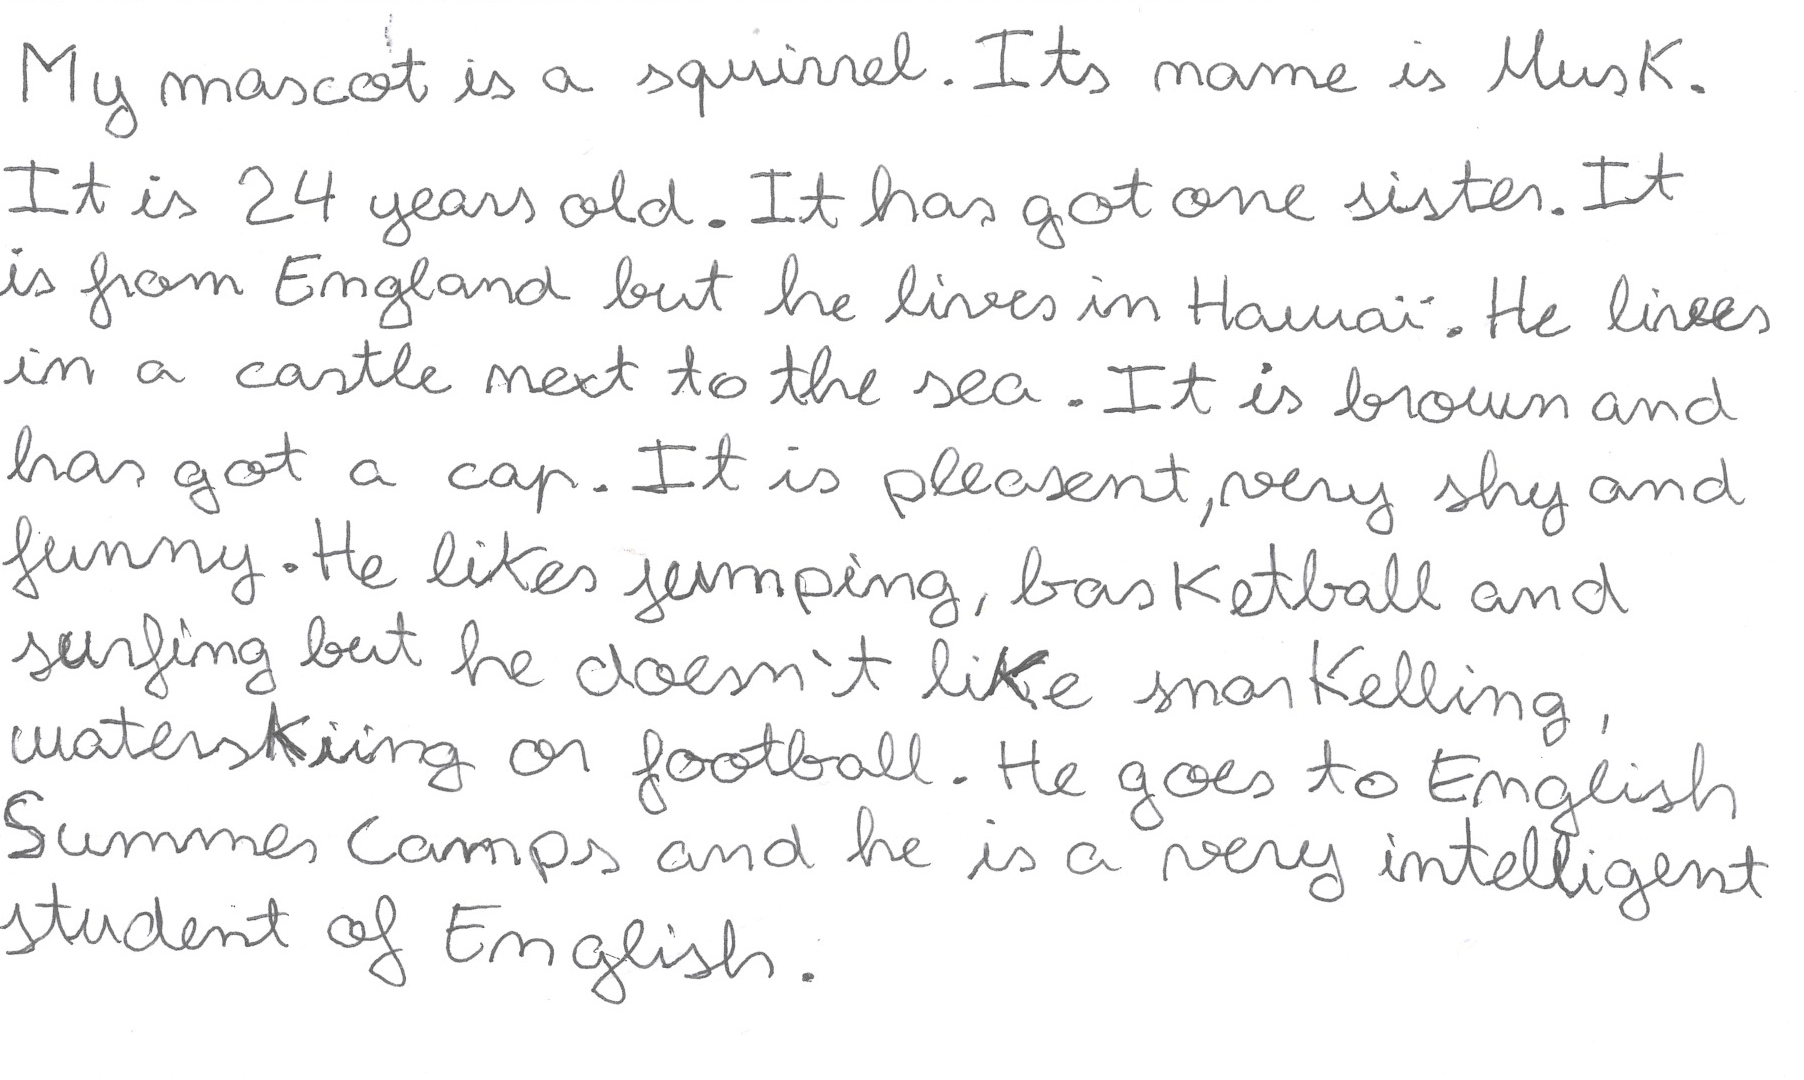 My mascot is a squirrel. Its name is Musk.
It is 24 years old. It has got one sister. It
is from England but he lives in Hawaï. He lives
in a castle next to the sea. It is brown and
has got a cap. It is pleasent, very shy and
funny. He likes jumping, basketball and
surfing but he doesn't like snorkelling,
waterskiing or football. He goes to English
Summer Camps and he is a very intelligent
student of English.